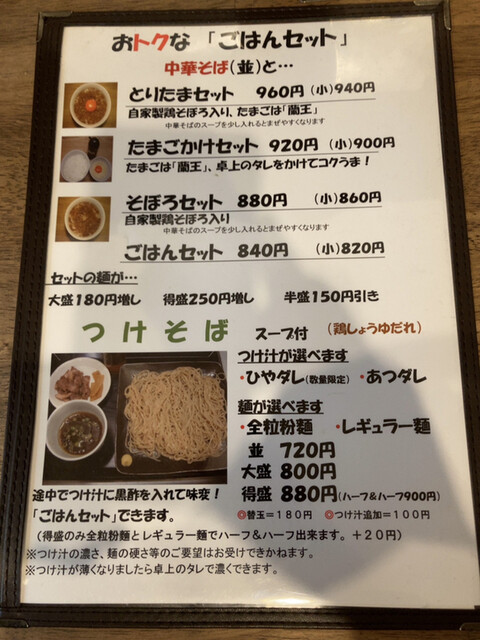 おトクな 「ごはんセット」
中華そば(並)と…
とりたまセット 960円 (小)940円
自家製鶏そぼろ入り、たまごは「蘭王」
中華そばのスープを少し入れるとまぜやすくなります
たまごかけセット 920円 (小)900円
たまごは「蘭王」、卓上のタレをかけてコクうま！
そぼろセット 880円 (小)860円
自家製鶏そぼろ入り
中華そばのスープを少し入れるとまぜやすくなります
ごはんセット 840円 (小)820円
セットの麺が…
大盛180円増し 得盛250円増し 半盛150円引き
つけそば スープ付 (鶏しょうゆだれ)
つけ汁が選べます
・ひやダレ(数量限定) ・あつダレ
麺が選べます
・全粒粉麺 ・レギュラー麺
並 720円
大盛 800円
得盛 880円(ハーフ＆ハーフ900円)
◎替玉＝180円 ◎つけ汁追加＝100円
途中でつけ汁に黒酢を入れて味変！
「ごはんセット」できます。
(得盛のみ全粒粉麺とレギュラー麺でハーフ＆ハーフ出来ます。＋20円)
※つけ汁の濃さ、麺の硬さ等のご要望はお受けできかねます。
※つけ汁が薄くなりましたら卓上のタレで濃くできます。